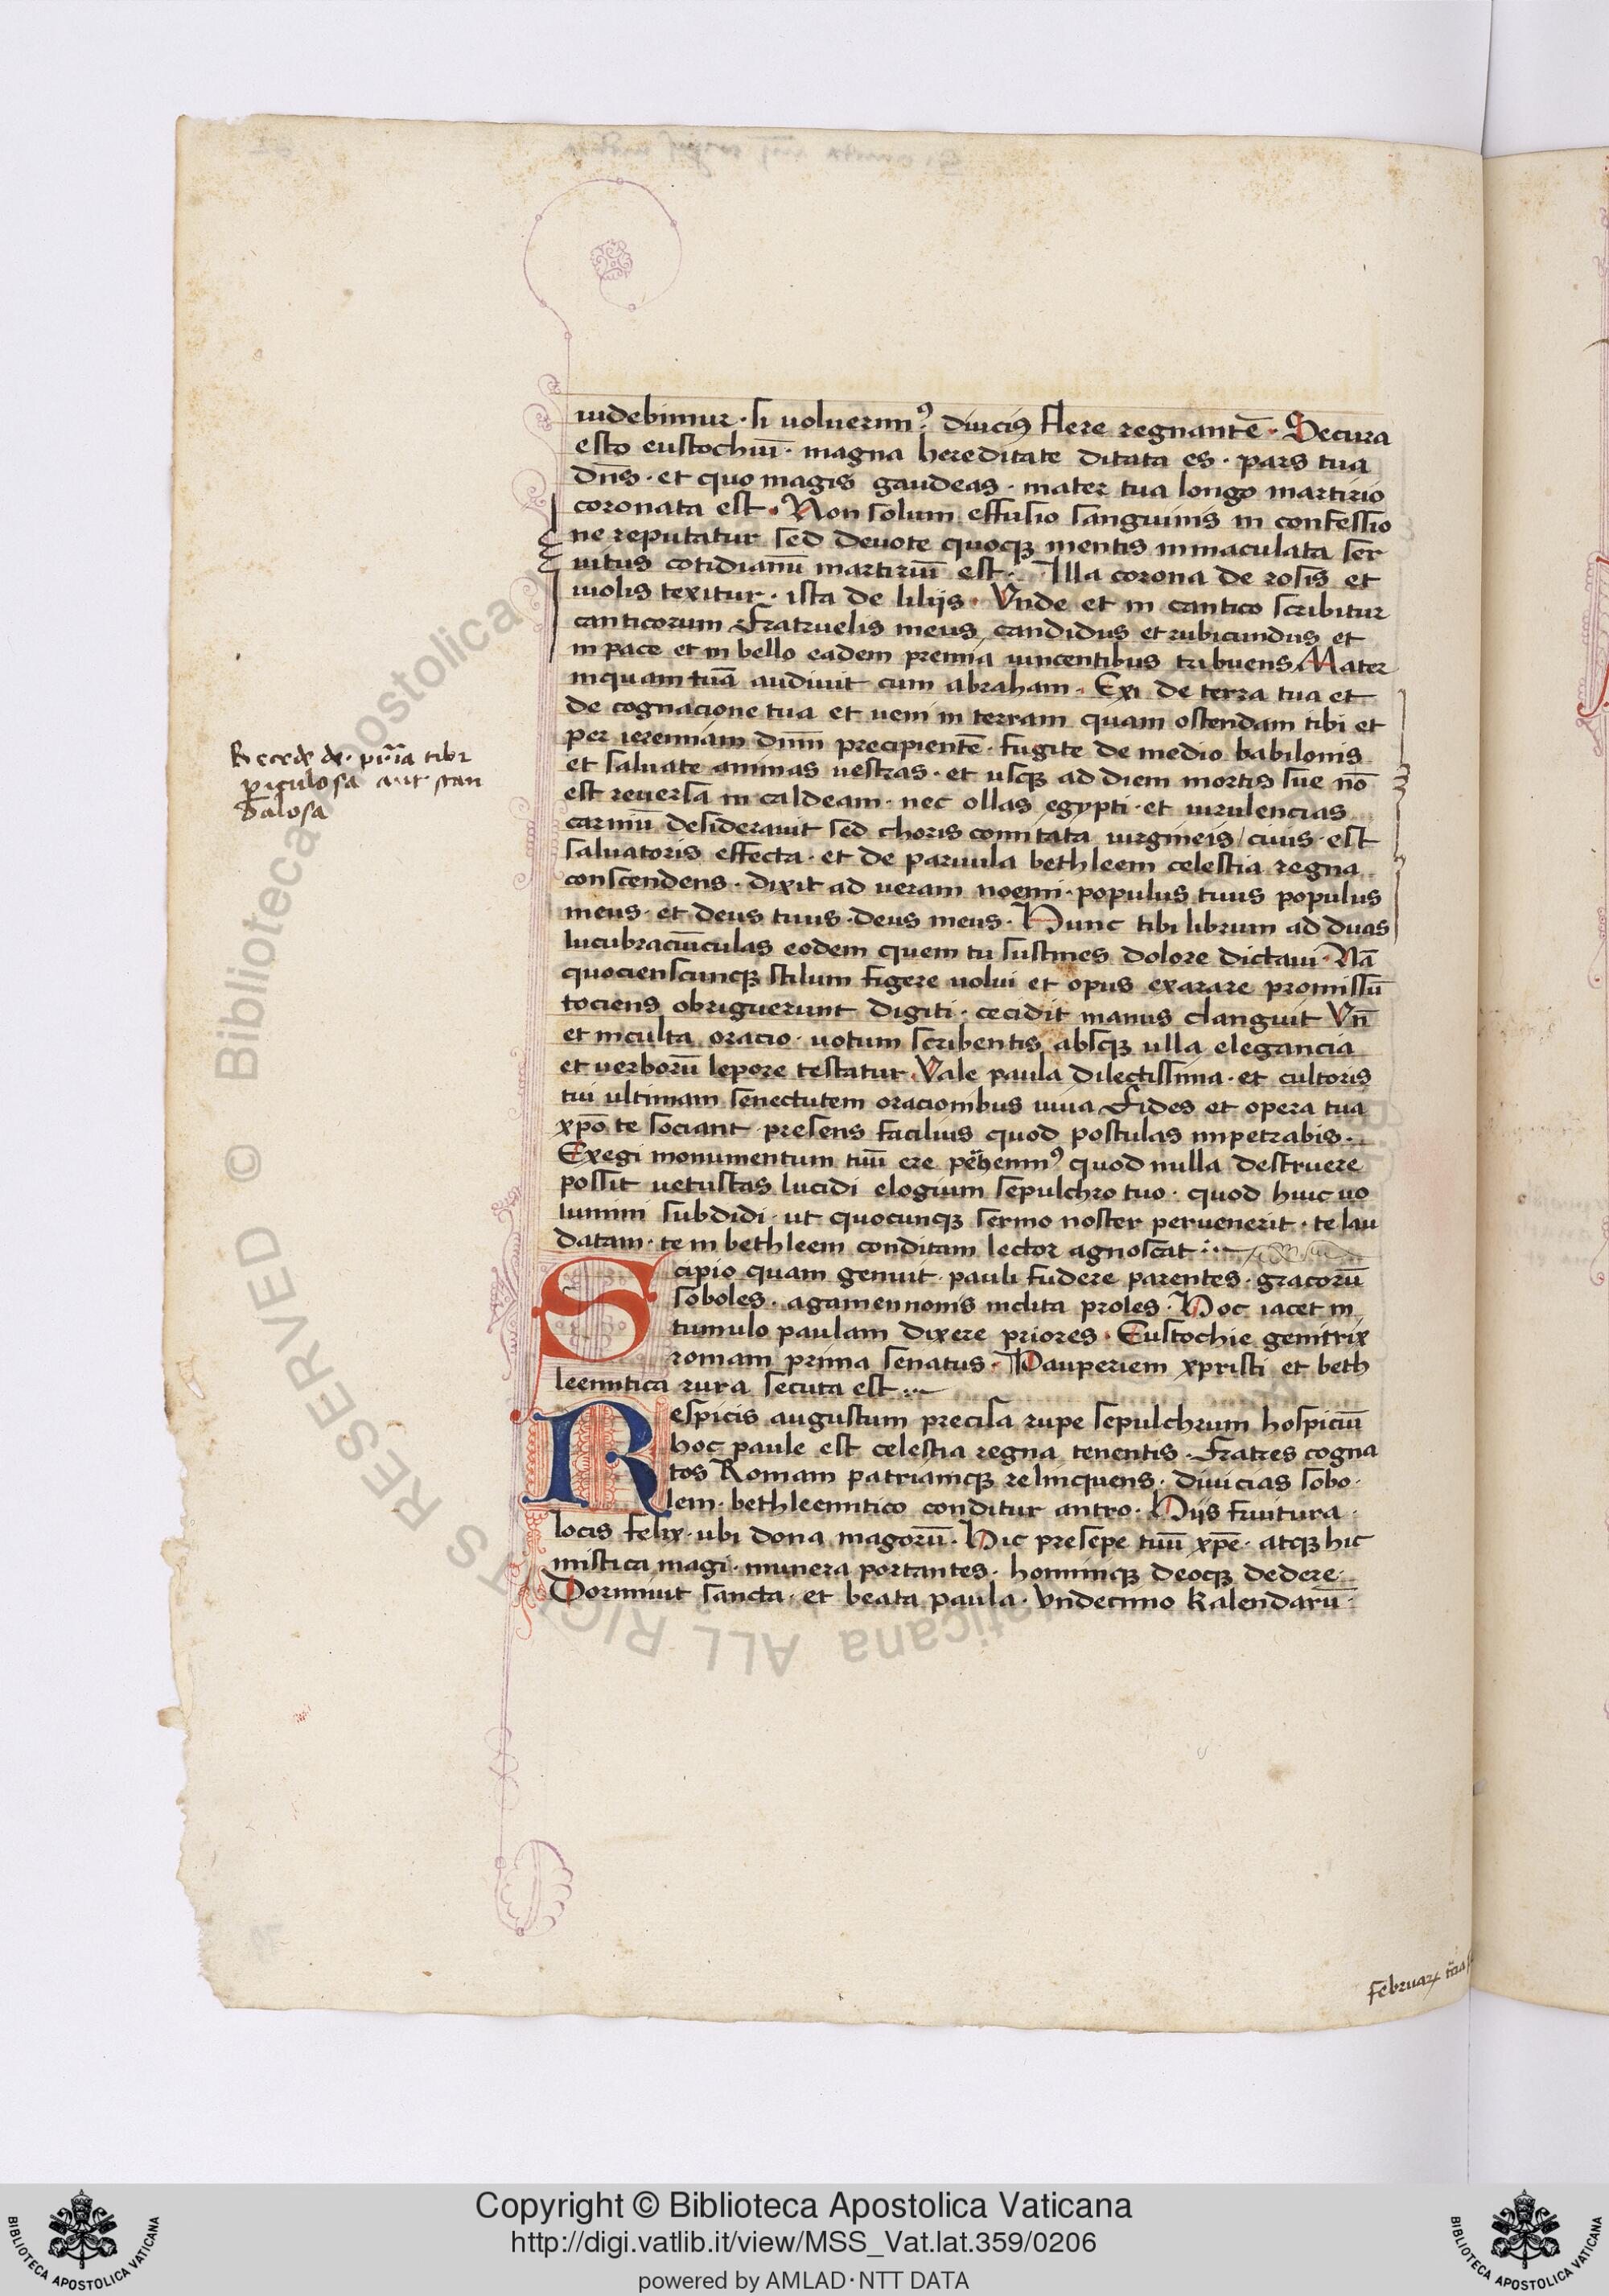 uidebimur · si uoluerimꝰ diucius flere regnantē · Secura
esto eustochiū · magna hereditate ditata es · pars tua
dn̄s · et quo magis gaudeas · mater tua longo martirio
coronata est · Non solum effusio sanguinis in confessio
ne reputatur sed deuote quoqꝫ mentis immaculata ser
uitus cotidianū martiriū est · Illa corona de rosis et
uiolis texitur · ista de lilijs · Vnde et in cantico scribitur
canticorum fratruelis meus candidus et rubicundus et
in pace et in bello eadem premia uincentibus tribuens Mater
inquam tuā audiuit cum abraham · Exi de terra tua et
de cognacione tua et ueni in terram quam ostendam tibi et
per ieremiam dn̄m precipientē · fugite de medio babilonis
et saluate animas uestras · et usqꝫ ad diem mortis sue nō
est reuersa in caldeam · nec ollas egypti · et uirulencias
carniū desiderauit sed choris comitata uirgineis / ciuis · est
saluatoris effecta · et de paruula bethleem celestia regna
conscendens · dixit ad ueram noemi · populus tuus populus
meus · et deus tuus · deus meus · Hunc tibi librum ad duas
lucubraciūculas eodem quem tu sustines dolore dictaui · Nā
quocienscunqꝫ stilum figere uolui et opus exarare promissū
tociens obriguerunt digiti · cecidit manus elanguit Vn̄
et inculta oracio · uotum scribentis absqꝫ ulla elegancia
et uerborū lepore testatur Vale paula dilectissima · et cultoris
tui ultimam senectutem oracionibus iuua Fides et opera tua
xp̄o te sociant presens facilius quod postulas impetrabis ·
Exegi monumentum tuū ere perhennꝰ quod nulla destruere
possit uetustas lucidi elogium sepulchro tuo · quod huic uo
lumini subdidi · ut quocunqꝫ sermo noster peruenerit · te lau
datam · te in bethleem conditam lector agnoscat
Scipio quam genuit pauli fudere parentes · gracorū
soboles · agamennonis inclita proles · Hoc iacet in
tumulo paulam dixere priores · Eustochie genitrix
romam prima senatus · Pauperiem xpristi et beth
leemitica rura secuta est
Respicis augustum precisa rupe sepulchrum hospiciū
hoc paule est celestia regna tenentis · Fratres cogna
tos Romam patriamqꝫ relinquens · diuicias sobo
lem · bethleemitico conditur antro · Hijs fuitura
locis felix · ubi dona magorū · Hic presepe tuū xp̄e · atqꝫ hic
mistica magi · munera portantes · hominiqꝫ deoqꝫ dedere
Dormiuit sancta · et beata paula · Vndecimo Kalendarū
Recede de · pr̄ia tibi
ꝑiculosa aut scan
dalosa
februarꝝ
© Biblioteca Apostolica Vaticana ALL RIGHTS RESERVED
Copyright © Biblioteca Apostolica Vaticana
http://digi.vatlib.it/view/MSS_Vat.lat.359/0206
powered by AMLAD·NTT DATA
BIBLIOTECA APOSTOLICA VATICANA
BIBLIOTECA APOSTOLICA VATICANA